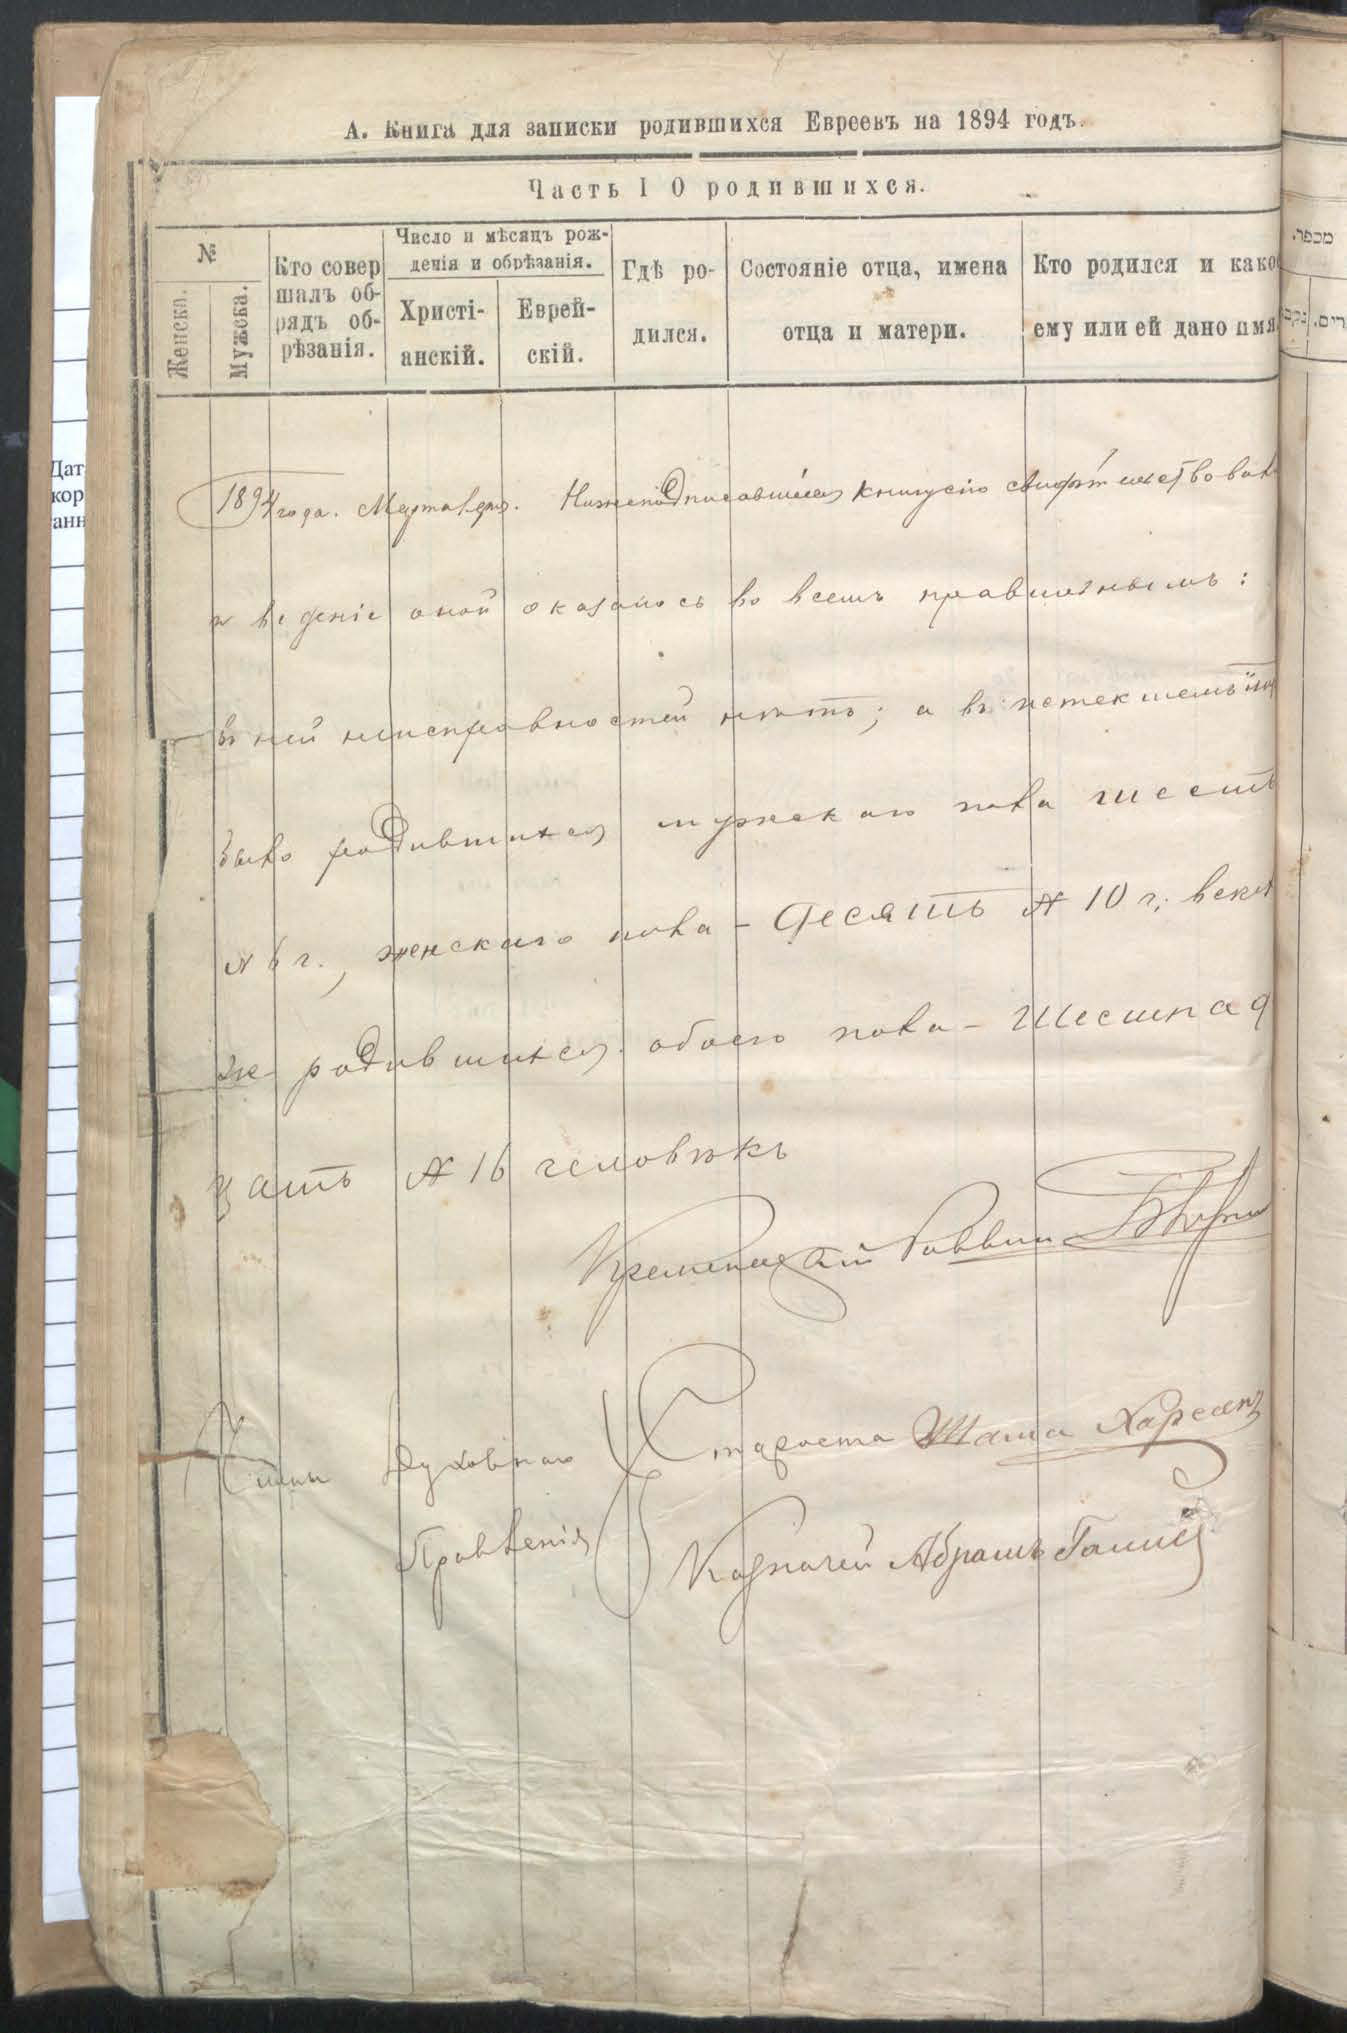 А. Книга для записки родившихся Евреевъ на 1894 годъ.
Часть I О родившихся.
№
Женска.
Мужска.
Кто совер
шалъ об-
рядъ об-
рѣзанія.
Число и мѣсяцъ рож-
денія и обрѣзанія.
Христі-
анскій.
Еврей-
скій.
Гдѣ ро-
дился.
Состояніе отца, имена
отца и матери.
Кто родился и како
ему или ей дано имя
1894 года. Марта 1 дня. Нижеподписавшіеся книгу сію свидѣтельствовали
и веденіе оной оказалось во всемъ правильнымъ:
въ ней неисправностей нѣтъ; а въ истекшемъ
было родившихся мужскаго пола шесть
№ 6 ч., женскаго пола - Десять № 10 ч.; всего
же родившихся обоего пола - Шестнад
цать № 16 человѣкъ
Кременецкій Раввин
Члены Духовнаго
Правленія
Староста
Казначей Абрамъ
מספר.